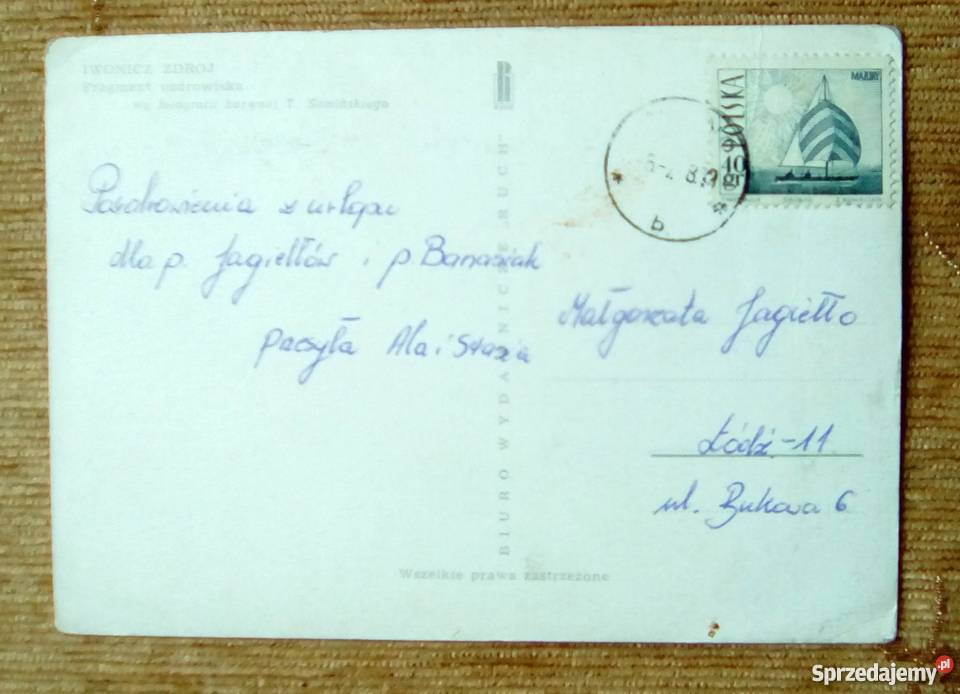 IWONICZ ZDRÓJ
Fragment uzdrowiska
wg fotografii barwnej T. Sumińskiego
Pozdrowienia z urlopu
dla p. Jagiełłów i p Banasiak
pacsyła Ala i Stasia
BIURO WYDAWNICZE „RUCH"
Wszelkie prawa zastrzeżone
POLSKA
MAZURY
10 gr
b
Małgorzata Jagiełło
Łódź-11
ul. Bukowa 6
Sprzedajemy.pl